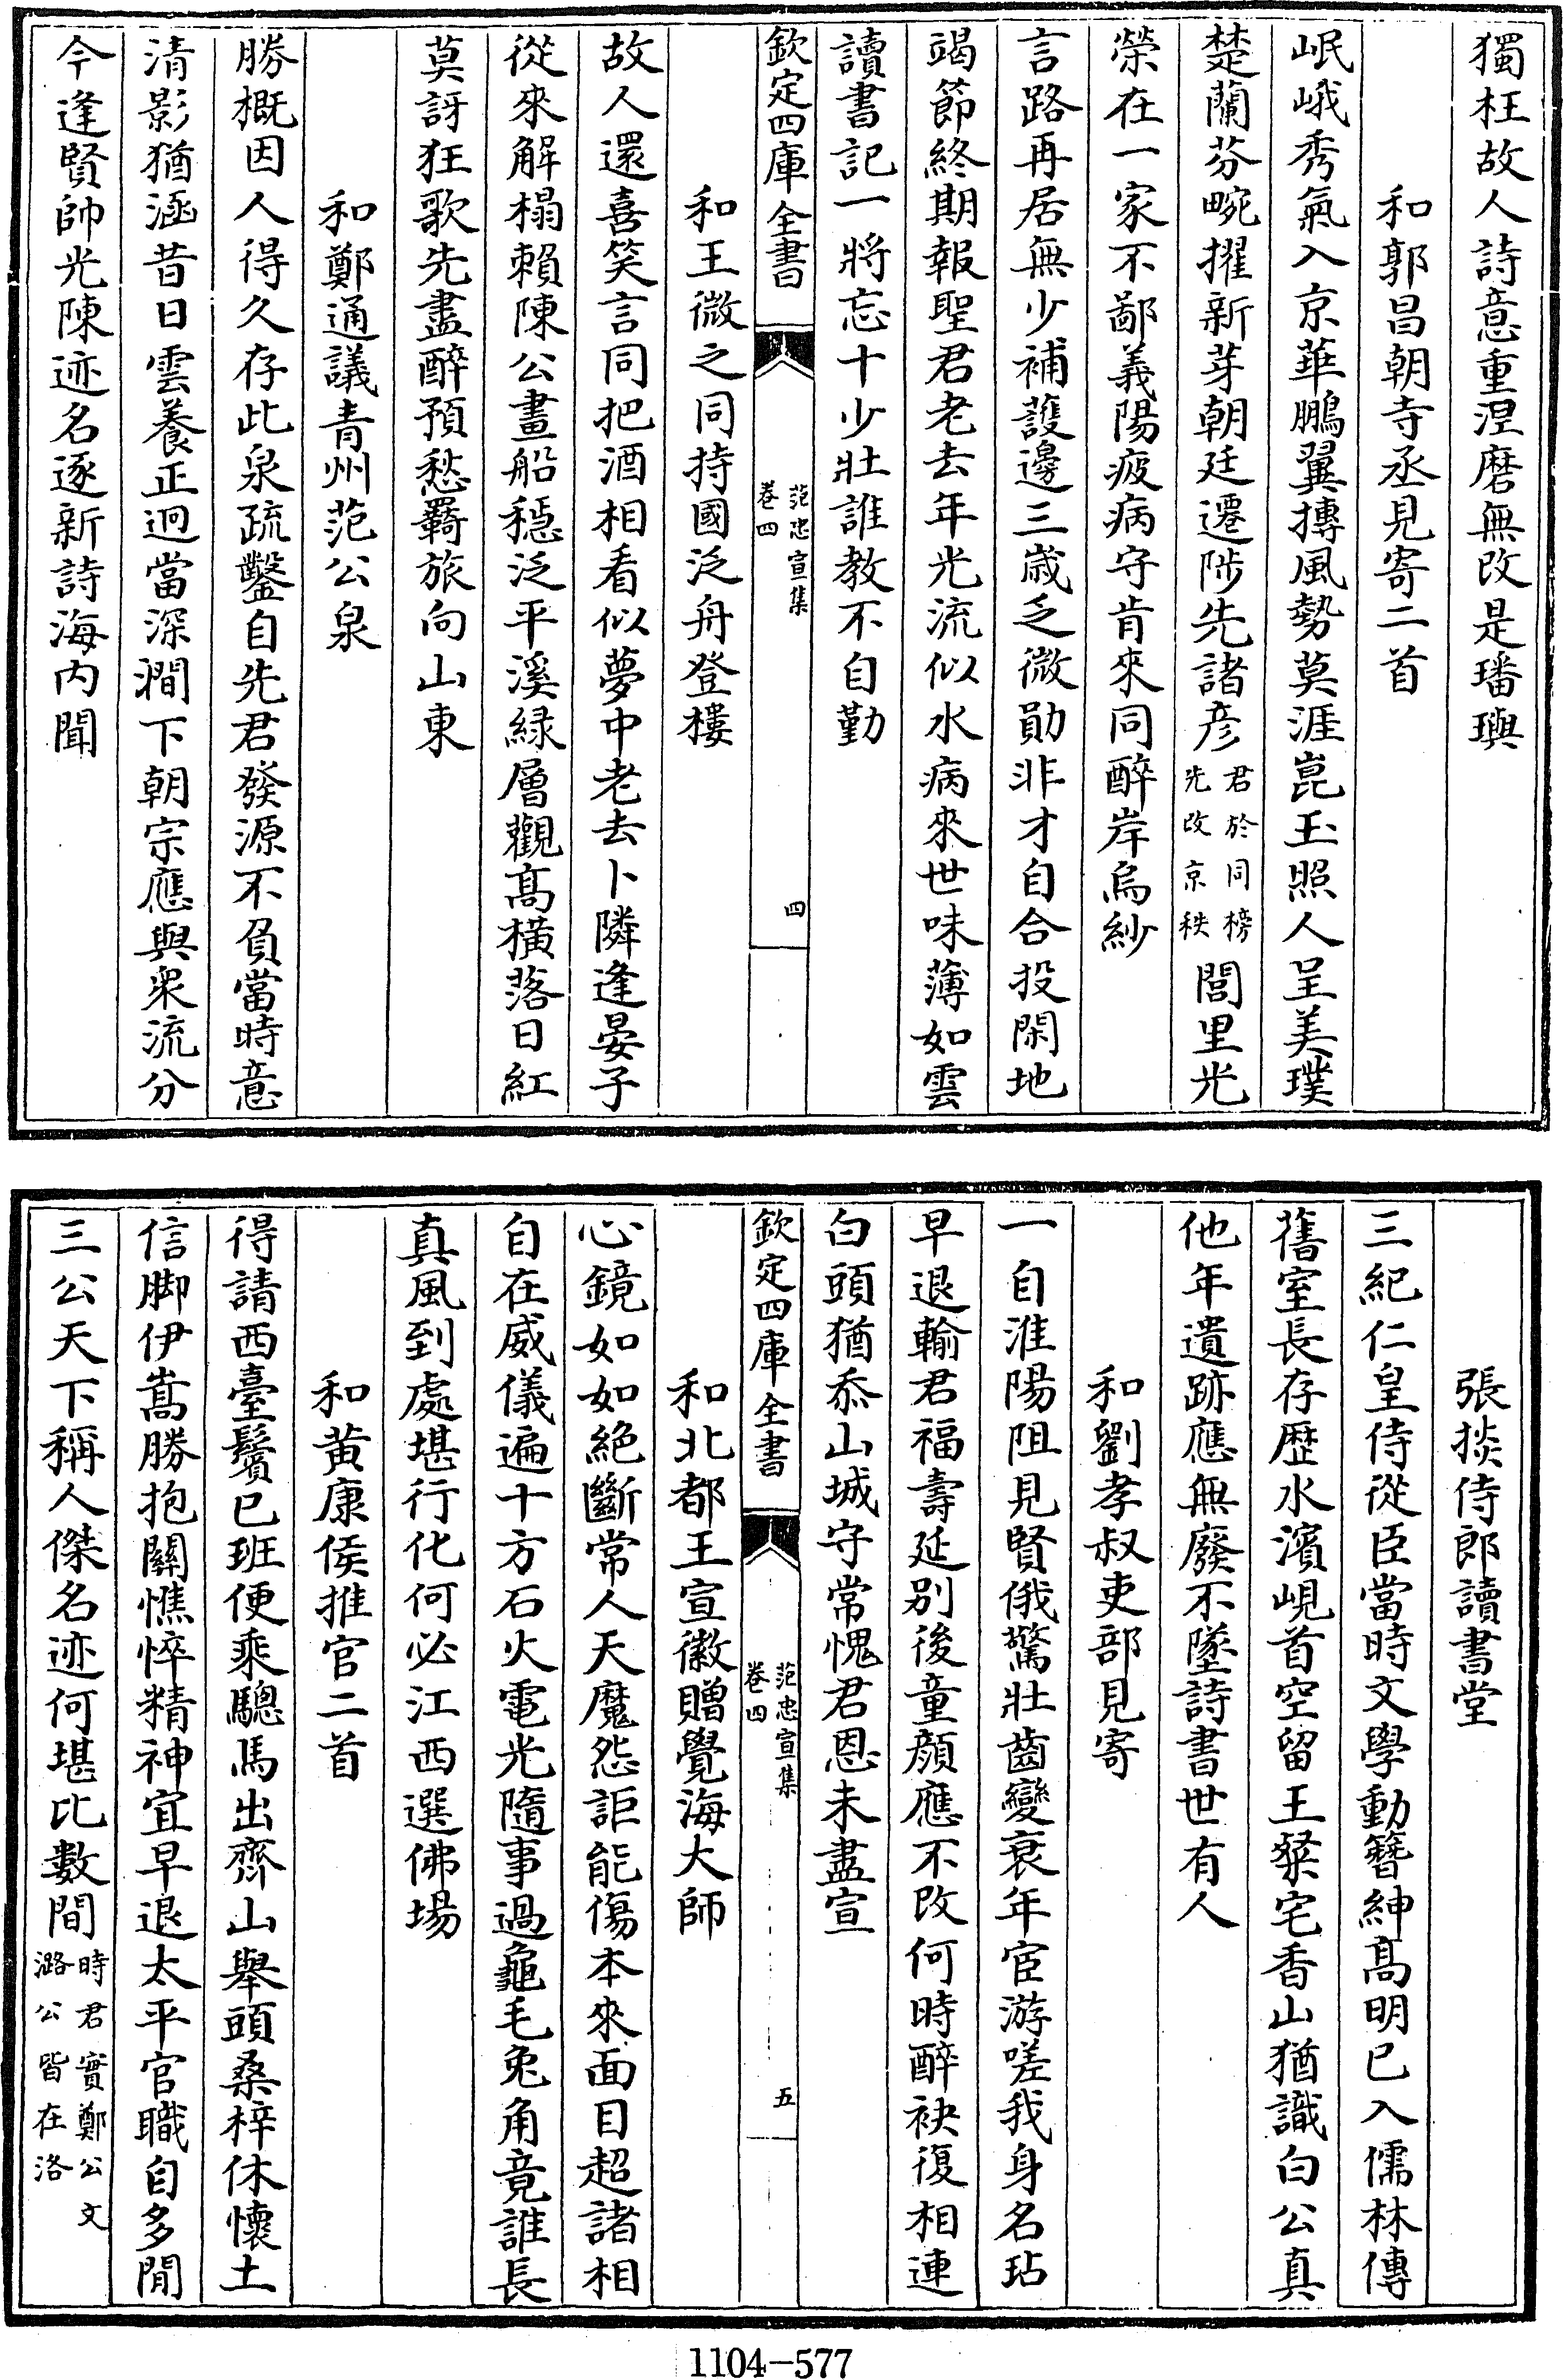 獨枉故人詩意重涅磨無改是璠璵
和郭昌朝寺丞見寄二首
岷峨秀氣入京華鵬翼摶風勢莫涯崑玉照人呈美璞
楚蘭芬畹擢新芽朝廷遷陟先諸彦君於同榜先改京秩閭里光
榮在一家不鄙義陽疲病守肯來同醉岸烏紗
言路再居無少補護邊三歲乏微勛非才自合投閑地
竭節終期報聖君老去年光流似水病來世味薄如雲
讀書記一將忘十少壯誰教不自勤
欽定四庫全書
范忠宣集
卷四
四
和王微之同持國泛舟登樓
故人還喜笑言同把酒相看似夢中老去卜隣逢晏子
從來解榻賴陳公畫船穏泛平溪緑層觀髙横落日紅
莫訝狂歌先盡醉預愁覊旅向山東
和鄭通議青州范公泉
勝概因人得久存此泉疏鑿自先君發源不負當時意
清影猶涵昔日雲養正迥當深澗下朝宗應與衆流分
今逢賢帥光陳迹名逐新詩海内聞
張掞侍郎讀書堂
三紀仁皇侍從臣當時文學動簪紳髙明已入儒林傳
舊室長存歴水濱峴首空留王粲宅香山猶識白公真
他年遺跡應無廢不墜詩書世有人
和劉孝叔吏部見寄
一自淮陽阻見賢俄驚壯齒變衰年宦游嗟我身名玷
早退輸君福壽延别後童顔應不改何時醉袂復相連
白頭猶忝山城守常愧君恩未盡宣
欽定四庫全書
范忠宣集
卷四
五
和北都王宣徽贈覺海大師
心鏡如如絶斷常人天魔怨詎能傷本來面目超諸相
自在威儀遍十方石火電光隨事過龜毛兔角竟誰長
真風到處堪行化何必江西選佛場
和黄康侯推官二首
得請西臺鬢已班便乘驄馬出齊山舉頭桑梓休懷土
信脚伊嵩勝抱關憔悴精神宜早退太平官職自多閒
三公天下稱人傑名迹何堪比數間時君實鄭公文潞公皆在洛
1104-577